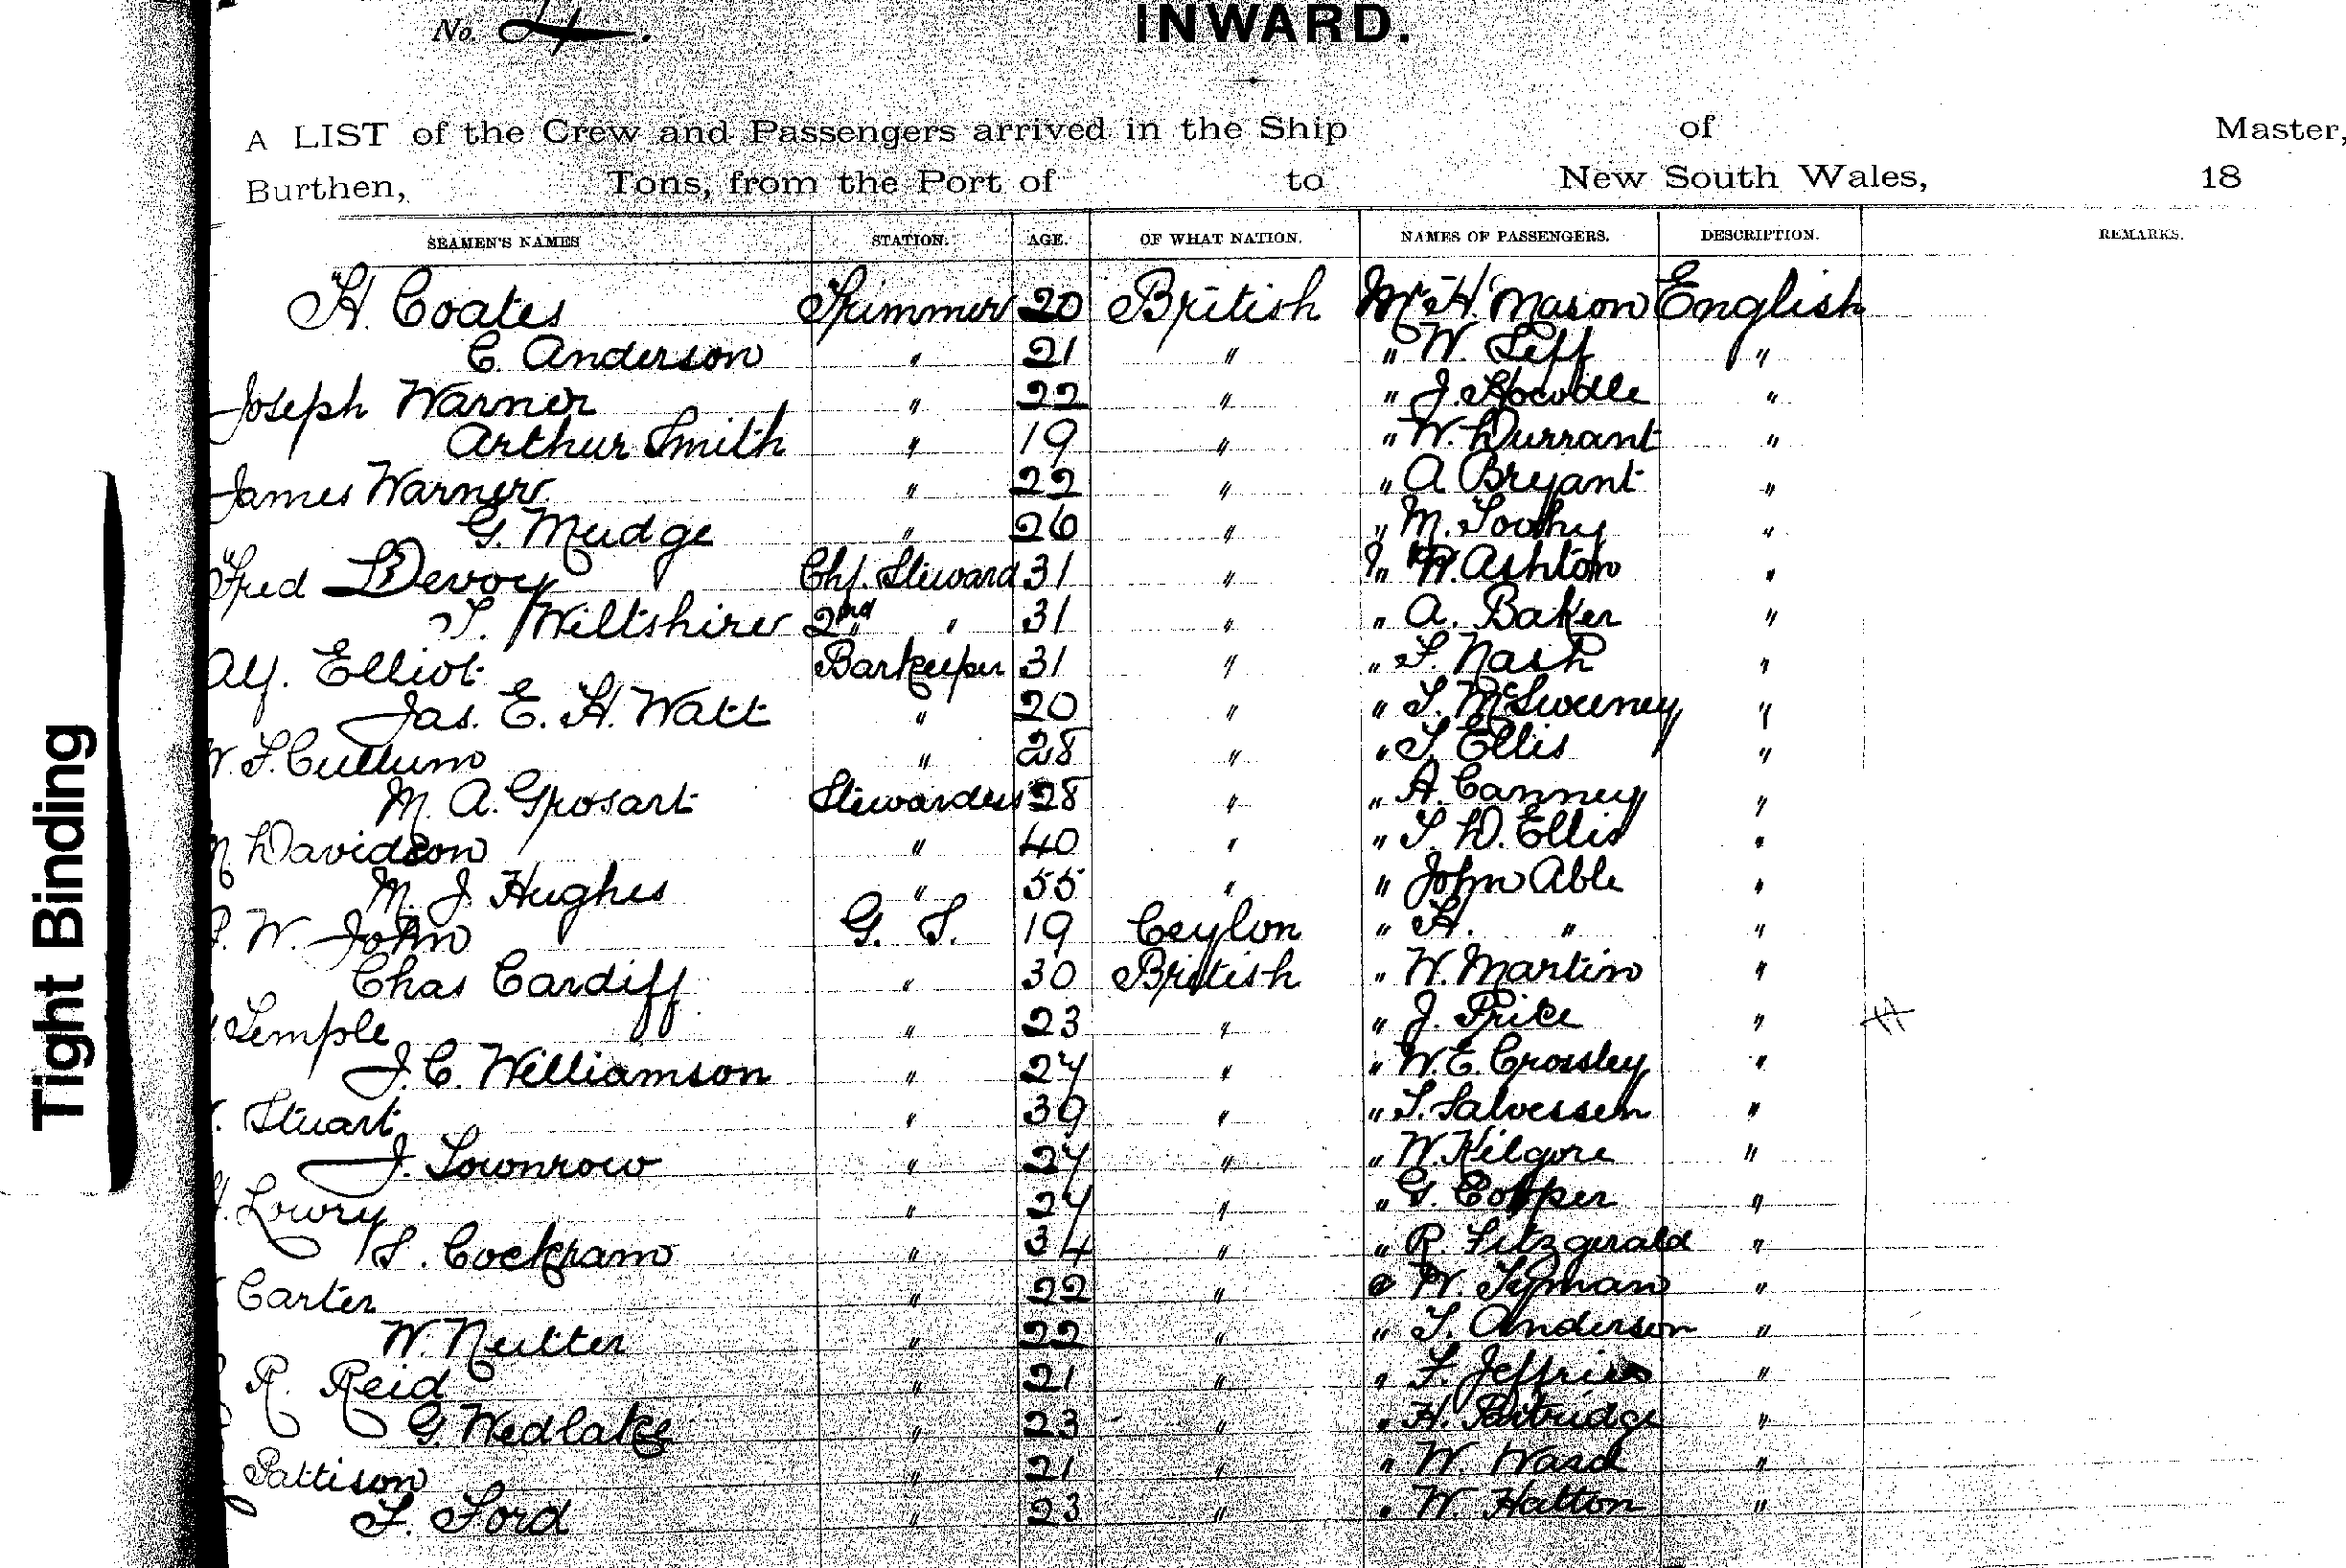 No. 4.
INWARD.
A LIST of the Crew and Passengers arrived in the Ship of Master,
Burthen, Tons, from the Port of to New South Wales, 18
SEAMEN'S NAMES STATION. AGE. OF WHAT NATION. NAMES OF PASSENGERS. DESCRIPTION. REMARKS.
H. Coates Trimmer 20 British Mr H. Mason English
C. Anderson " 21 " " W. Leff "
Joseph Warner " 22 " " J. "
Arthur Smith " 19 " " W. Durrant "
James Warner " 22 " " A Bryant "
G. Mudge " 26 " " M. Toohy "
Fred Devoy Chf. Steward 31 " " W. Ashton "
T. Wiltshire 2nd " 31 " " A. Baker "
Alf. Elliot Barkeeper 31 " " T. Nash "
Jas. E. H. Watt " 20 " " T. McSweeney "
W. F. Cullum " 28 " " T. Ellis "
M. A. Grosart Stewardess 28 " " A. Canney "
M Davidson " 40 " " T. D. Ellis "
M. J Hughes " 55 " " John Able "
P. W. John G. S. 19 Ceylon " H. " "
Chas Cardiff " 30 British " W. Martin "
Temple " 23 " " J. Price "
J. C. Williamson " 27 " " W. E. Crossley "
Stuart " 39 " " T. Salvessen "
J. Townrow " 27 " " W. Kilgore "
Lowry " 27 " " G. Copper "
S. Cockram " 34 " " R. Fitzgerald "
Carter " 22 " " W. "
W. Nutter " 22 " " T. Anderson "
R. Reid " 21 " " F. Jeffries "
G. Wedlake " 23 " " H. Partridge "
Pattison " 21 " " W. Ward "
F. Ford " 23 " " W. Hatton "
Tight Binding